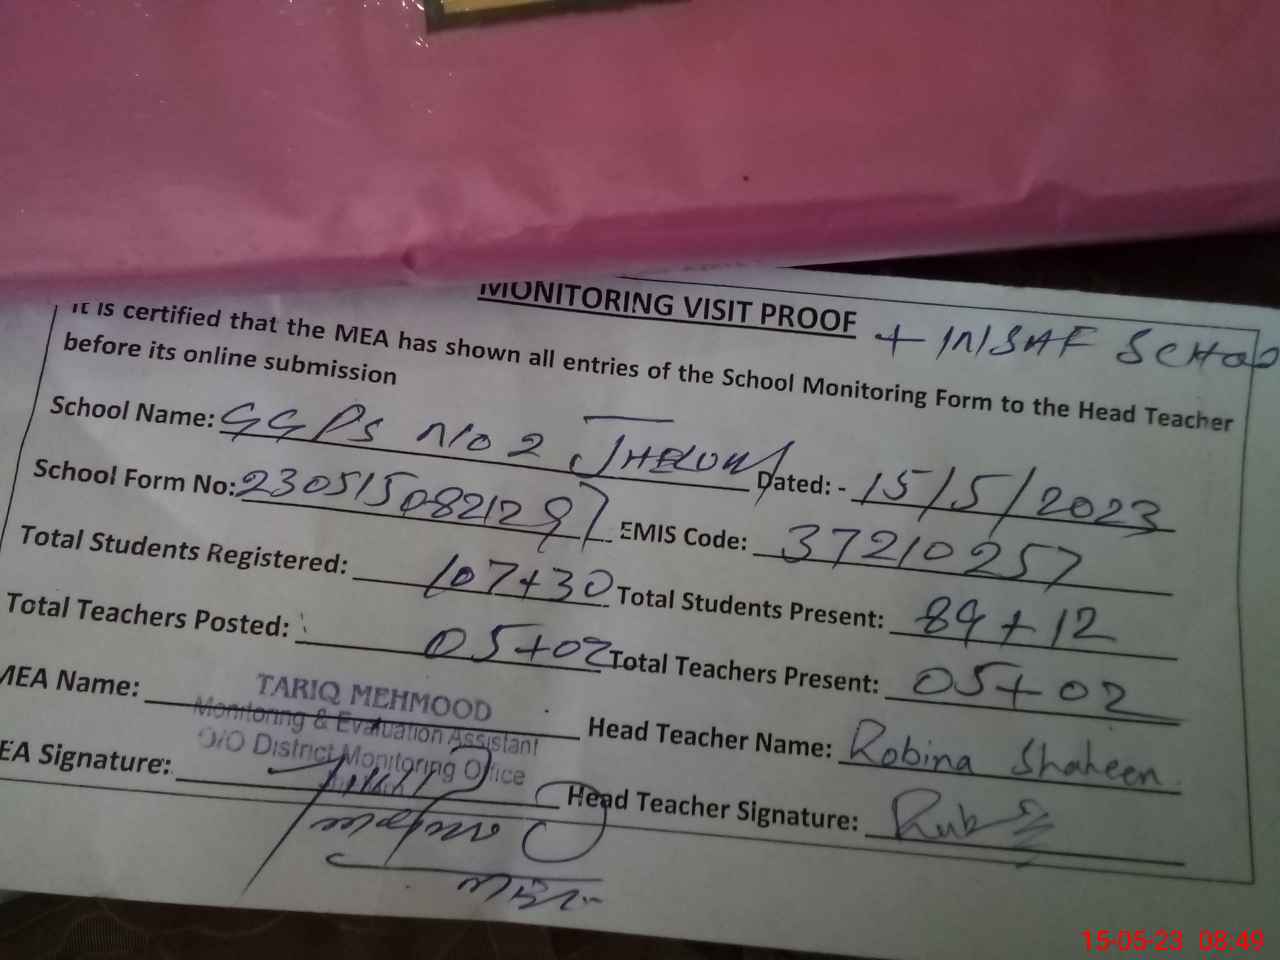 MONITORING VISIT PROOF + INSAF SCHOO
It is certified that the MEA has shown all entries of the School Monitoring Form to the Head Teacher
before its online submission
School Name: GGPS No 2 JHELUM Dated: - 15/5/2023
School Form No: 2305150821297 EMIS Code: 37210257
Total Students Registered: 107+30 Total Students Present: 89+12
Total Teachers Posted: 05+02 Total Teachers Present: 05+02
MEA Name: TARIQ MEHMOOD Head Teacher Name: Robina Shaheen
Monitoring & Evaluation Assistant
O/O District Monitoring Office
EA Signature: Head Teacher Signature:
15-05-23 08:49